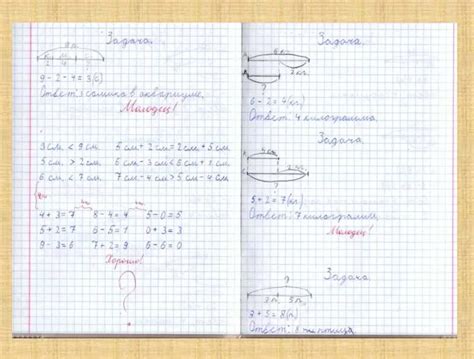 Задача.
9 - 2 - 4 = 3(с)
Ответ: 3 сомика в аквариуме.
Молодец!
3 см. < 9 см. 6 см + 2 см = 2 см + 6 см
5 см. > 2 см. 6 см - 3 см < 6 см +
6 см. < 7 см. 7 см - 4 см > 5 см - 4 см
4 + 3 = 7 8 - 4 = 4 5 - 0 = 5
5 + 2 = 7 6 - 5 = 1 0 + 3 = 3
9 - 3 = 6 7 + 2 = 9 6 - 6 = 0
Хорошо!
?
Задача.
6 кг.
2 кг.
?
6 - 2 = 4(кг.)
Ответ: 4 килограмма.
Задача
?
5 + 2 = 7(кг)
Ответ: 7 килограмм
Молодец!
Задача
?
3 п. 5 п.
3 + 5 = 8(п.)
Ответ: 8 птица.